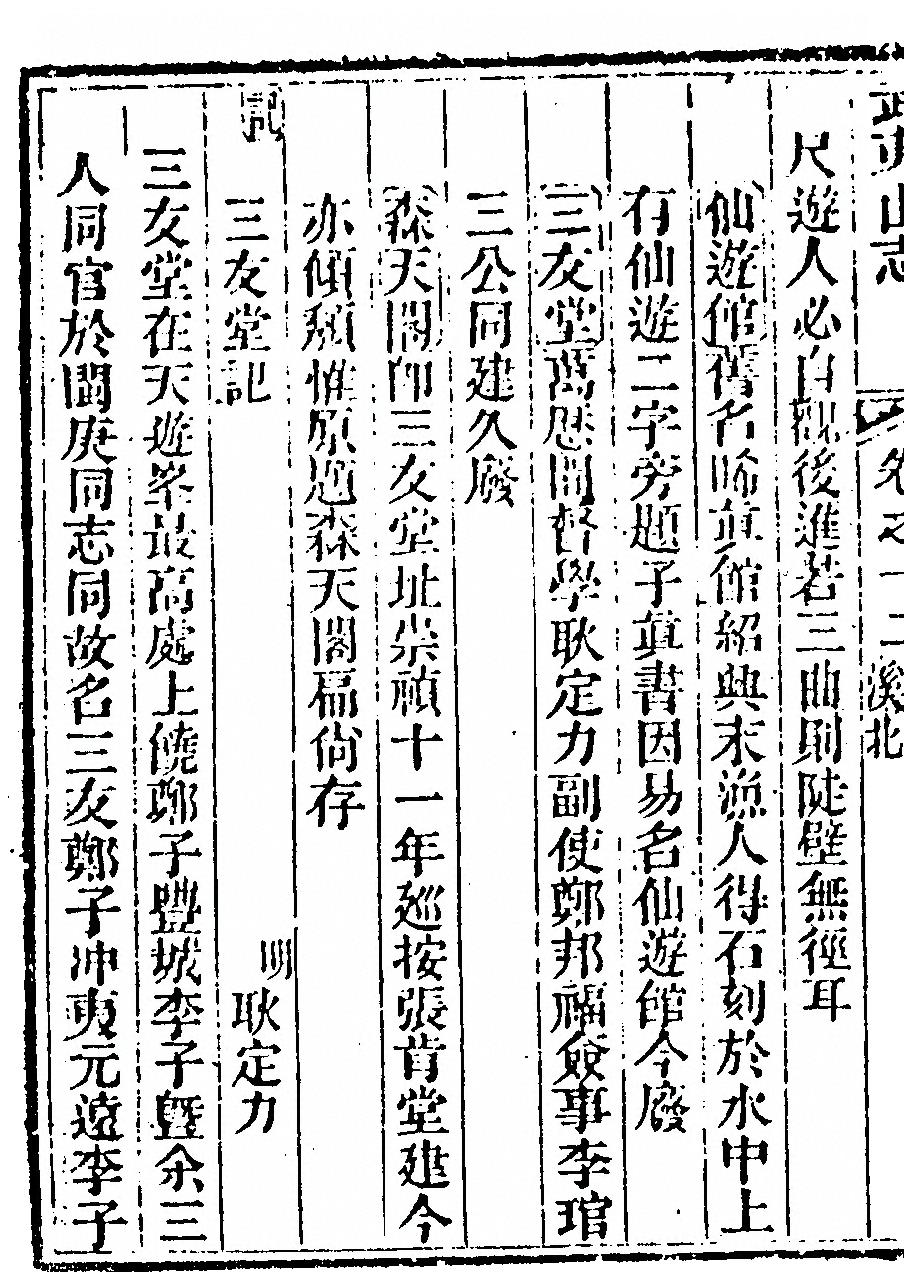 武夷山志 卷之十二 溪北
尺遊人必自觀後進若三曲則陡壁無徑耳
仙遊館舊名晞真館紹興末漁人得石刻於水中上
有仙遊二字旁題子真書因易名仙遊館今廢
三友堂萬歷間督學耿定力副使鄭邦福僉事李琯
三公同建久廢
森天閣即三友堂址崇禎十一年廵按張肯堂建今
亦傾頹惟原題森天閣扁尚存
記
三友堂記 明 耿定力
三友堂在天遊峯最高處上饒鄭子豐城李子曁余三
人同官於閩庚同志同故名三友鄭子冲夷元遠李子